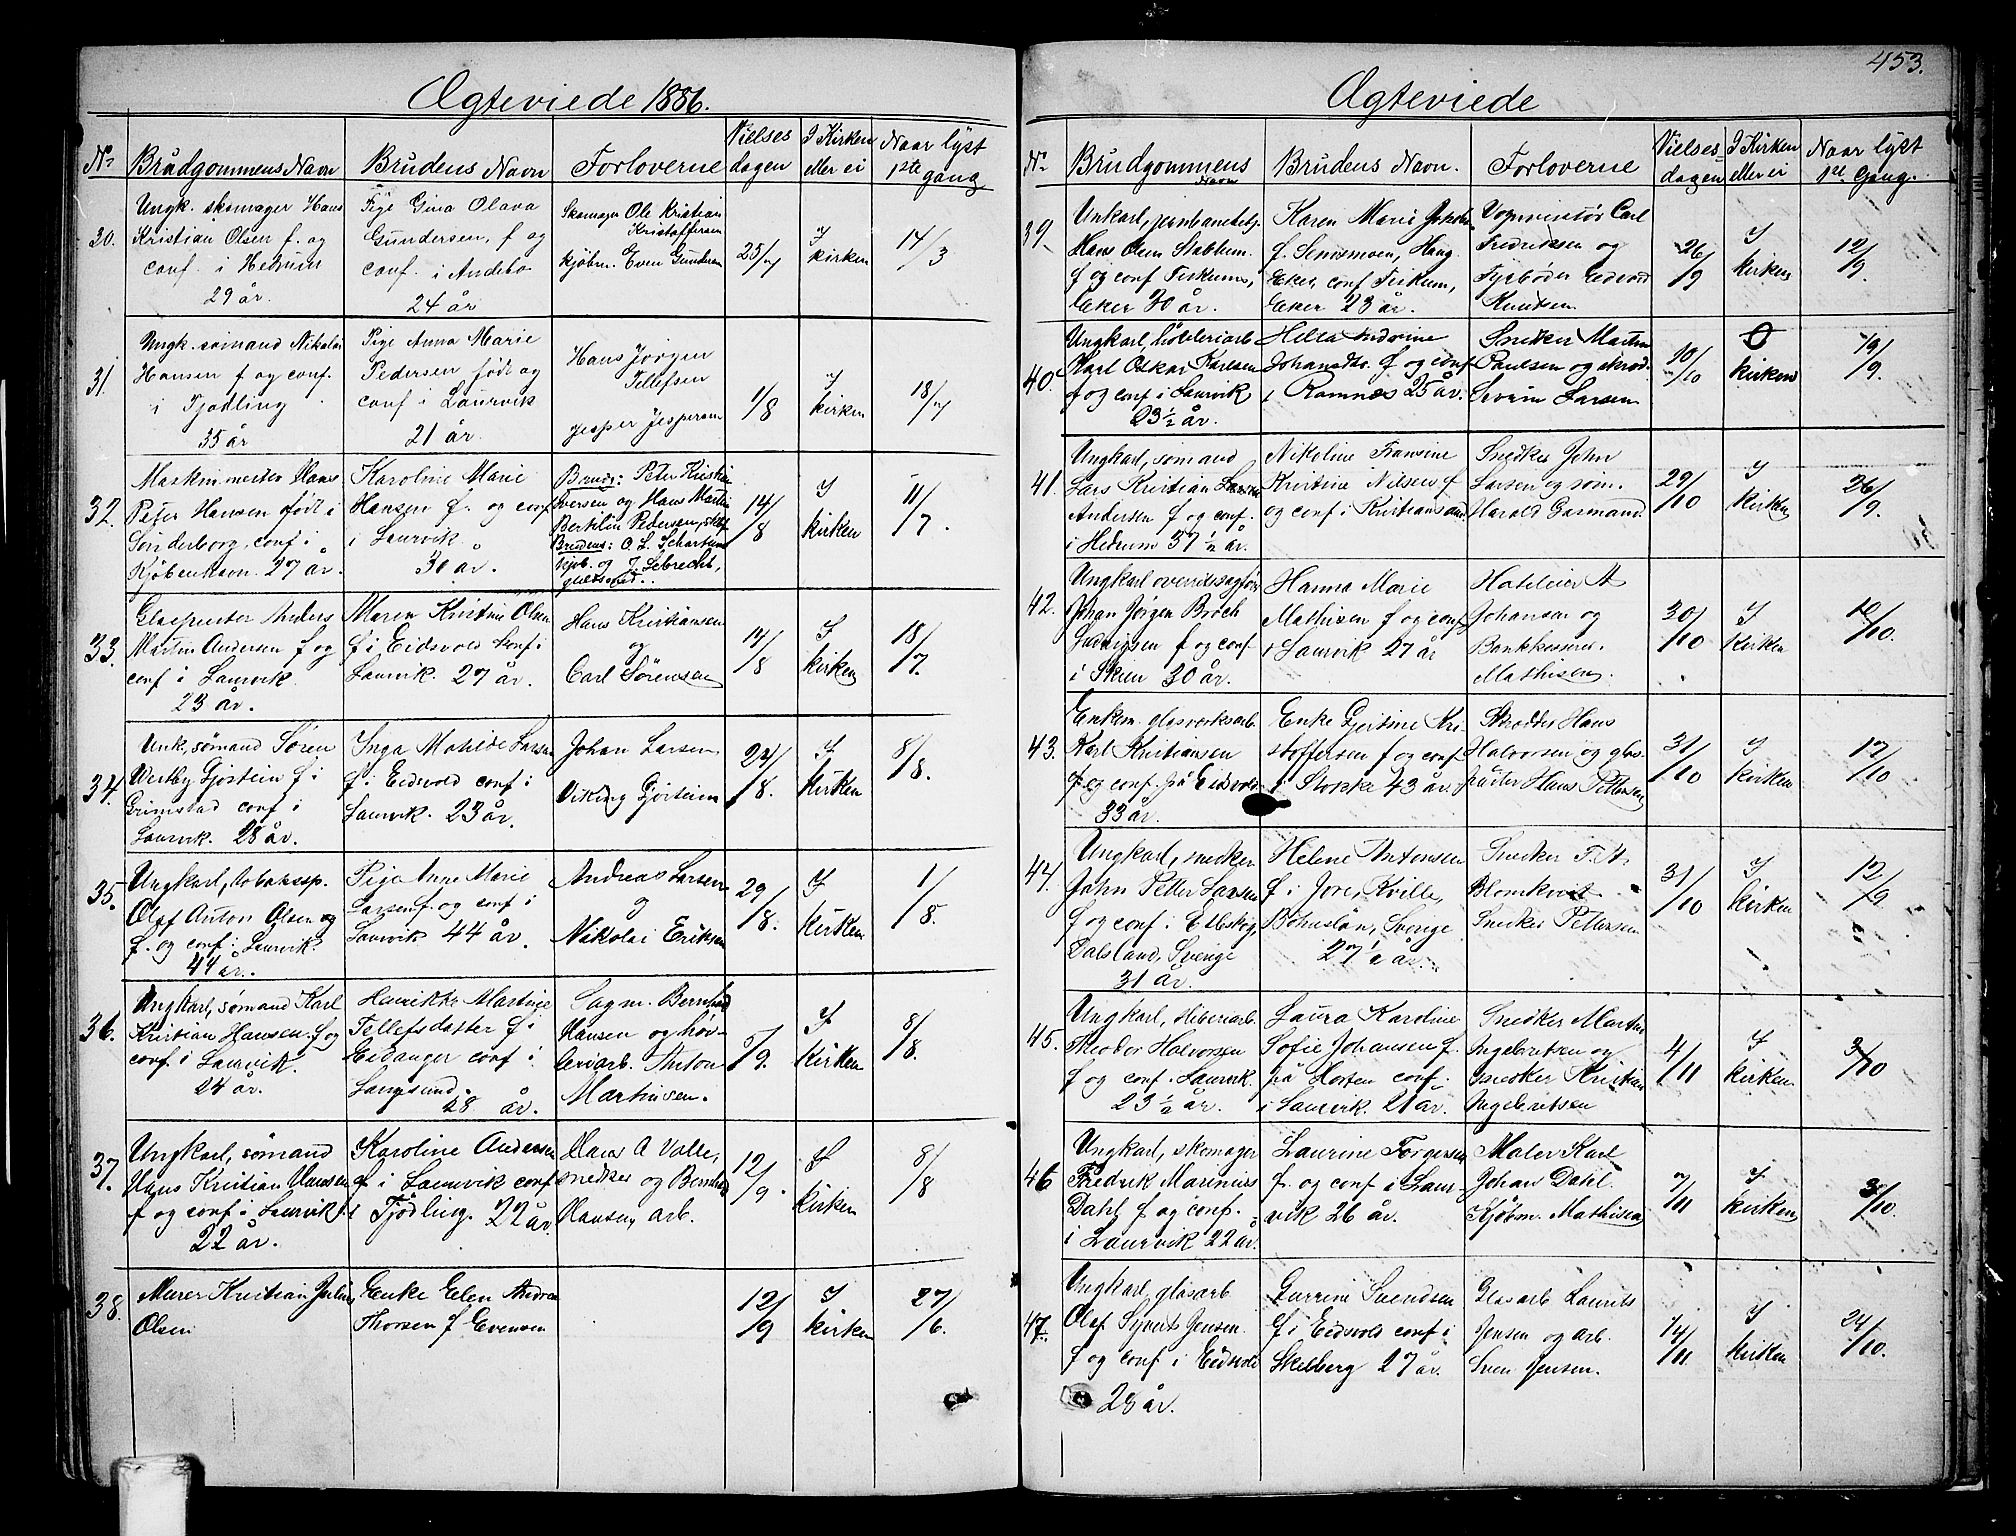 Ægteviede 1886.
No Brudgommens Navn Brudens Navn Forloverne Vielses dagen I Kirken eller ei Naar lyst 1ste gang
30.
Ungk. skomager Hans
Kristian Olsen f. og
conf. i Hedrum
29 år.
Pige Gina Olava
Gundersen, f og
conf. i Andebo
24 år
Skomager Ole Kristian
Kristoffersen
kjøbm. Even Gundersen
25/7
I
kirken
14/3
31.
Ungk. sømand Nikolai
Hansen f og conf.
i Tjødling
35 år
Pige Anna Marie
Pedersen født og
conf i Laurvik
21 år.
Hans Jørgen
Tellefsen
Jesper Jespersen
1/8
I
kirken
18/7
32.
Maskinmester Hans
Peter Hansen født i
Sønderborg, conf. i
Kjøbenhavn. 27 år.
Karoline Marie
Hansen f. og conf
i Laurvik
30 år.
Brudg: Peter Kristian
Iversen og Hans Martin
Berklin Pedersen,
Brudens: O. L. Schartum
kjøb. og J. Lebrecht,
14/8
I
kirken
11/7.
33.
Glaspuster Anders
Martin Andersen f og
conf i Laurvik
23 år.
Maren Kristine Olsen
f i Eidsvold conf. i
Laurvik. 27 år.
Hans Kristiansen
og
Carl Sørensen
14/8
I
kirken
18/7.
34.
Unk, sømand Søren
Westby Gjøstein f i
Grimstad conf i
Laurvik. 28 år.
Inga Matilde Larsen
f. i Eidsvold conf i
Laurvik. 23 år.
Johan Larsen
Viking Gjøstein
22/8.
I
Kirken
8/8.
35.
Ungkarl, tobaksp.
Olaf Anton Olsen og
f. og conf i Laurvik.
44 år.
Pige Anne Marie
Larsen f. og conf i
Laurvik 44 år.
Andreas Larsen
og
Nikolai Eriksen
29/8.
I
Kirken
1/8.
36.
Ungkarl, sømand Karl
Kristian Hansen f og
conf. i Laurvik.
24 år.
Henrikke Martine
Tellefsdatter f. i
Eidanger conf. i
Langsund.
28 år.
Sagm. Bernhard
Hansen og høv-
leriarb. Anton
Martinsen.
5/9.
I
Kirken
8/8.
37.
Ungkarl, sømand
Hans Kristian Hansen
f og conf i Laurvik
22 år.
Karoline Andersen
f i Laurvik conf
i Tjødling. 22 år
Claus A Valle,
snedker og Bernhard
Hansen arb.
12/9.
I
kirken
8/8
38.
Murer Kristian Julius
Olsen
Enke Elen Andrea
Thorsen f Evensen
12/9
I
kirken
27/6.
453.
Ægteviede
No Brudgommens Navn Brudens Navn. Forloverne Vielses dagen I Kirken eller ei Naar lyst 1ste Gang.
39
Unkarl, jernbanebetj.
Hans Olsen Stabbum
f og conf Fiskum,
Eker 30 år.
Karen Marie
f. Haug
Eker, conf Fiskum,
Eker 23 år.
Vognmester Carl
Fredriksen og
Fyrbøder Edvard
Knudsen
26/9
I
kirken
12/9.
40.
Ungkarl høvleriarb
Karl Oskar Karlsen
f og conf i Laurvik
23 ½ år.
Hella Andrine
Johansdtr. f og conf
i Ramnæs 25 år.
Snedker Martin
Paulsen og skræd.
Severin Larsen
10/10
kirken
19/9.
41.
Ungkarl, sømand
Lars Kristian Larsen
Andersen f og conf.
i Hedrum 37 ½ år.
Nikoline Fransine
Kristine Nilsen f
og conf i Kristianssand
Snedker John
Larsen og søm.
Harald Gasmand.
29/10
I
kirken
26/9.
42.
Ungkarl overretssagfører
Johan Jørgen Broch
Ludvigsen f og conf
i Skien 30 år.
Hanna Marie
Mathisen f og conf
i Laurvik 27 år
Hoteleier A
Johansen og
Bankkasserer
Mathisen.
30/10
I
Kirken
10/10.
43.
Enkem. glasværksarb.
Karl Kristiansen
f og conf. på Eidsvold
33 år.
Enke Gjertine Kri-
stoffersen f og conf
i Stokke 43 år.
Skrædder Hans
Halvorsen og glas-
puster Hans Pettersen
31/10
I
kirken
17/10
44.
Ungkarl, snedker
John Petter Larsen
f og conf.
Dalsland, Sverige
31 år.
Helene Antonsen
f i Jore, Kville,
Bohuslän, Sverige
27 ½ år.
Snedker F. A.
Blomkvist
Snedker Pettersen
31/10
I
kirken
12/9
45.
Ungkarl, sliberiarb.
Theodor Halvorsen
f og conf. Laurvik
23 ½ år.
Laura Karoline
Sofie Johansen f.
på Horten conf.
i Laurvik. 21 år.
Snedker Martin
Ingebretsen og
snedker Kristian
Ingebretsen
4/11
I
kirken.
3/10
46
Ungkarl, skomager
Fredrik Marinius
Dahl f og conf.
i Laurvik 22 år.
Laurine Torgersen
f. og conf i Laur-
vik 26 år.
Maler Karl
Johan Dahl.
Kjøbm. Mathisen
7/11
I
kirken
/10.
47.
Ungkarl, glasarb
Olaf Sivert Jensen
f og conf i Eidsvold
28 år.
Gurrine Svendsen
f i Eidsvold conf i
Skelberg 27 år.
Glasarb Laurits
Jensen og arb.
Sven Jensen.
14/11
I
Kirken
24/10.